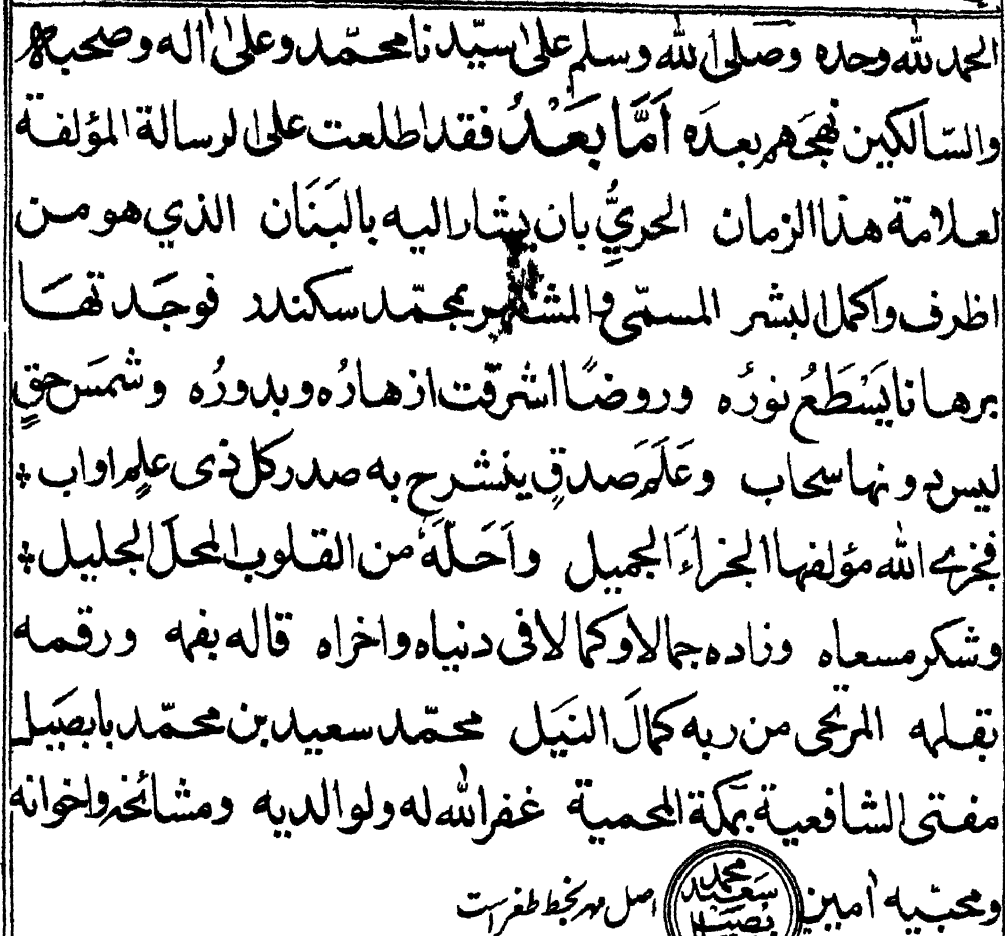 الحمد لله وحده وصلى الله وسلم على سيّدنا محمّد وعلى اله وصحبه
والسّالكين نهجهم بعده امّا بعد فقد اطلعت على الرسالة المؤلفة
لعلامة هذا الزمان الحريُّ بان يشار اليه بالبَنَان الذي هو من
اظرف واكمل البشر المسمّى والمشتهر بمحمّد سكندر فوجدتها
برهانا يَسْطَعُ نورُه وروضًا اشرقت ازهارُه وبدورُه وشمسَ حقٍ
ليس دونها سحاب وعَلَم صدقٍ ينشرح به صدر كل ذى علمٍ اواب
فجزى الله مؤلفها الجزاءَ الجميل واَحَلَّهُ من القلوب المحلَ الجليل
وشكر مسعاه وزاده جمالا وكمالا فى دنياه واخراه قاله بفمه ورقمه
بقلمه المرتجى من ربه كمالَ النَيل محمّد سعيد بن محمّد بابصَيل
مفتى الشافعية بمكة المحمية غفر الله له ولوالديه ومشائخه واخوانه
ومحبّيه اٰمين محمد سعيد بصيل اصل مهر بخط طغر است